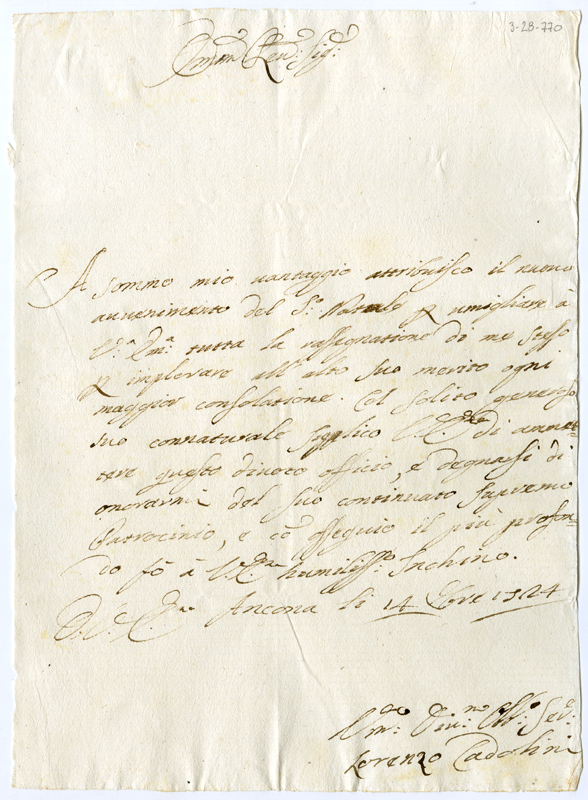 3-28-770
Em.mo Rev.mo Sig.r
A sommo mio vantaggio attribuisco il nuovo
avvenimento del S.o Natale p umigliare à
V.a Em.a tutta la rassegnatione di me stesso
p implorare all'alto suo merito ogni
maggior consolatione. Col solito generoso
suo connaturale supplico V.E. di amet
tere questo divoto officio, e degnarsi di
onorarmi del suo continuato supremo
Patrocinio, e cõ ossequio il più profon
do fò à V. Em.a humiliss.o Inchino.
D. V. Em.a Ancona li 14 Xbre 1724
Um.o Div.mo Obl.o Ser.e
Lorenzo Cadolini